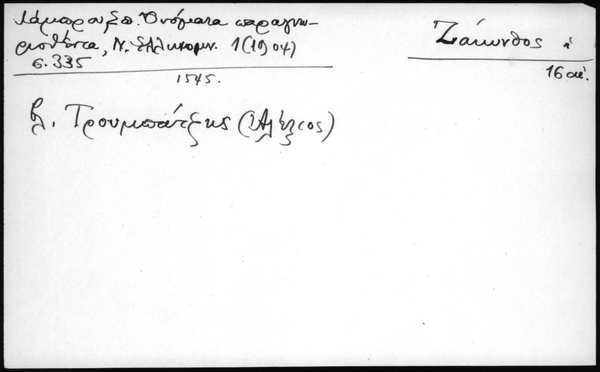 Λάμπρου Σπ. Ὀνόματα παραγνω-
ρισθέντα, Ν. Ἑλληνομν. 1(1904)
σ. 335
1545.
Ζάκυνθος
16 αἰ.
βλ. Τρουμπάτζης (Ἀλέξιος)